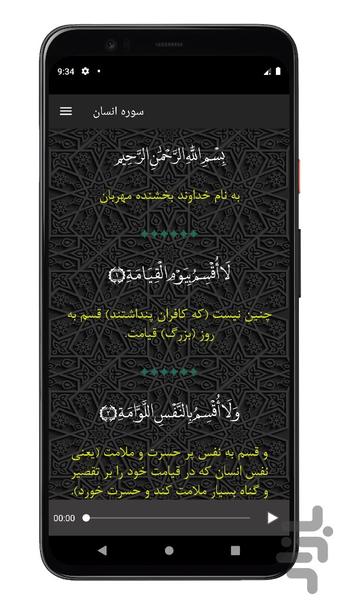 9:34
سوره انسان
بِسْمِ اللَّهِ الرَّحْمَٰنِ الرَّحِيمِ
به نام خداوند بخشنده مهربان
لَا أُقْسِمُ بِيَوْمِ الْقِيَامَةِ ﴿١﴾
چنین نیست (که کافران پنداشتند) قسم به
روز (بزرگ) قیامت.
وَلَا أُقْسِمُ بِالنَّفْسِ اللَّوَّامَةِ ﴿٢﴾
و قسم به نفس پر حسرت و ملامت (یعنی
نفس انسان که در قیامت خود را بر تقصیر
و گناه بسیار ملامت کند و حسرت خورد).
00:00
بازار